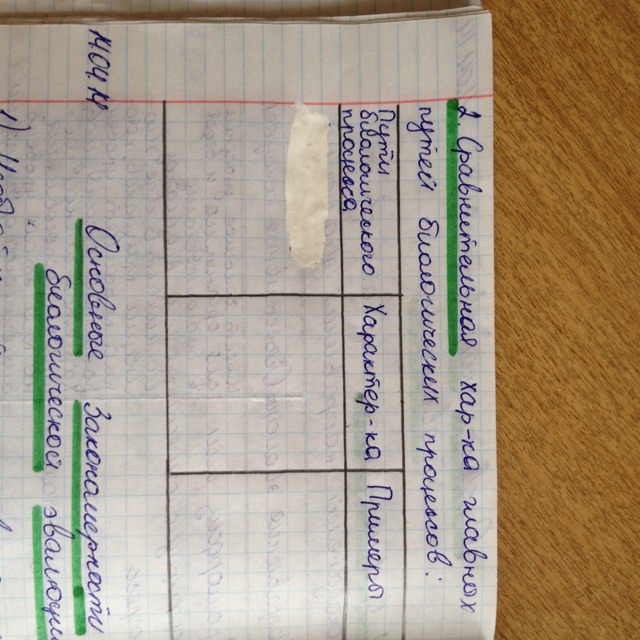 2. Сравнительная хар-ка главных
путей биологических процессов:
Пути
биологического
процесса
Характер-ка
Примеры
11.04.14
Основные Закономерности
биологической эволюции
1)